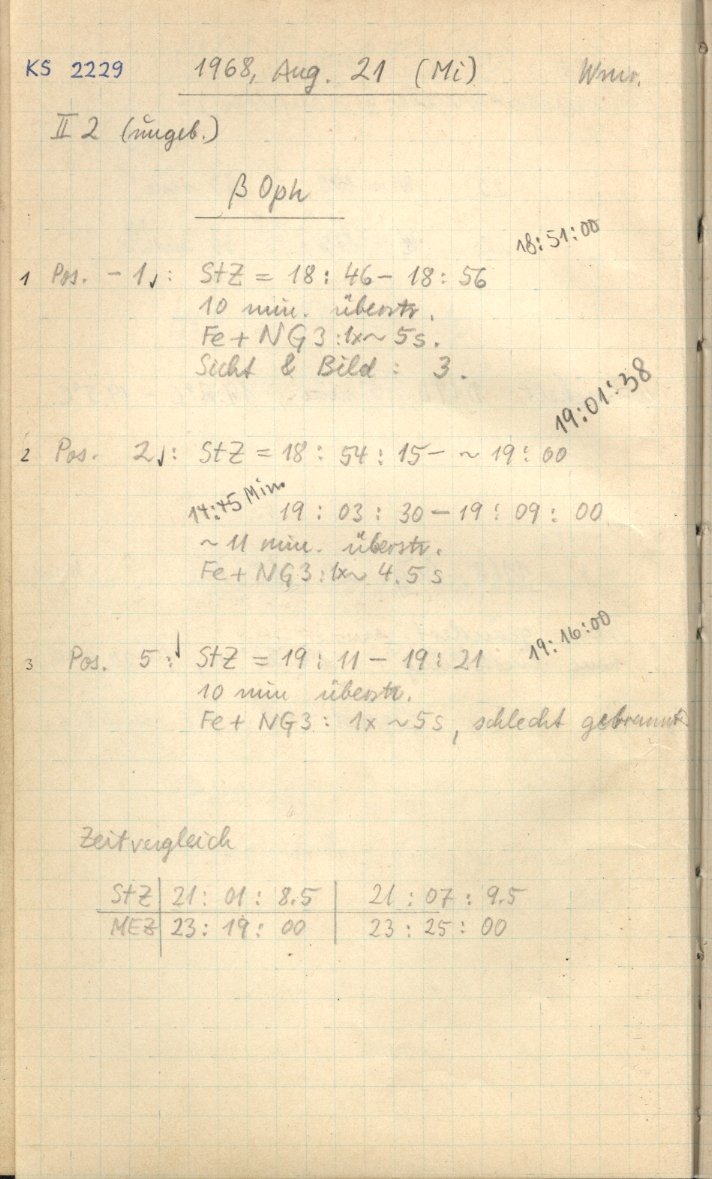 KS 2229
1968, Aug. 21 (Mi)
II 2 (ungeb.)
β Oph
18:51:00
1 Pos. -1: StZ = 18:46 - 18:56
10 min. überstr.
Fe + NG3: 1x ~ 5s.
Sicht & Bild: 3.
19:01:38
2 Pos. 2: StZ = 18:54:15 - ~ 19:00
14:45 Min 19:03:30 - 19:09:00
~ 11 min. überstr.
Fe + NG3: 1x ~ 4.5 s
19:16:00
3 Pos. 5: StZ = 19:11 - 19:21
10 min überstr.
Fe + NG3: 1x ~ 5s, schlecht gebrannt
Zeitvergleich
StZ 21:01:8.5 21:07:9.5
MEZ 23:19:00 23:25:00